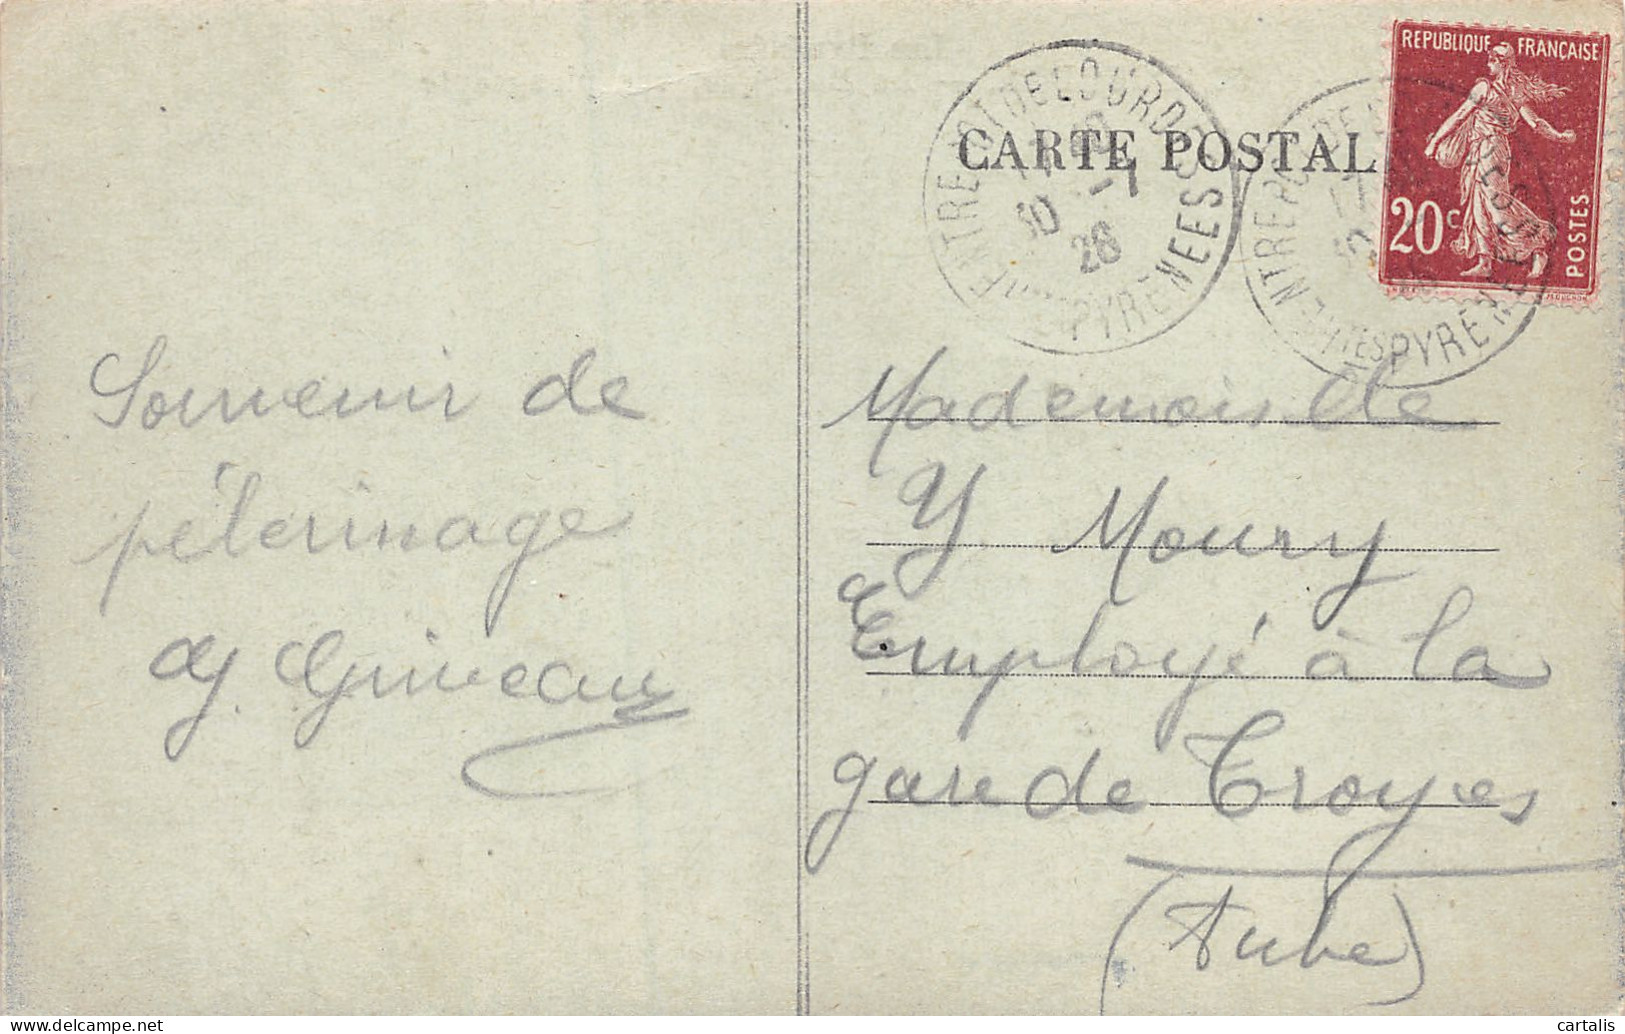 CARTE POSTALE
REPUBLIQUE FRANÇAISE
20c
POSTES
ENTREPOT DE LOURDES
30 -7
28
PYRENEES
ENTREPOT DE
HTES PYRENEES
Souvenir de
pélerinage
Mademoiselle
Y. Moury
Employé à la
gare de Troyes
(Aube)
delcampe.net
cartalis